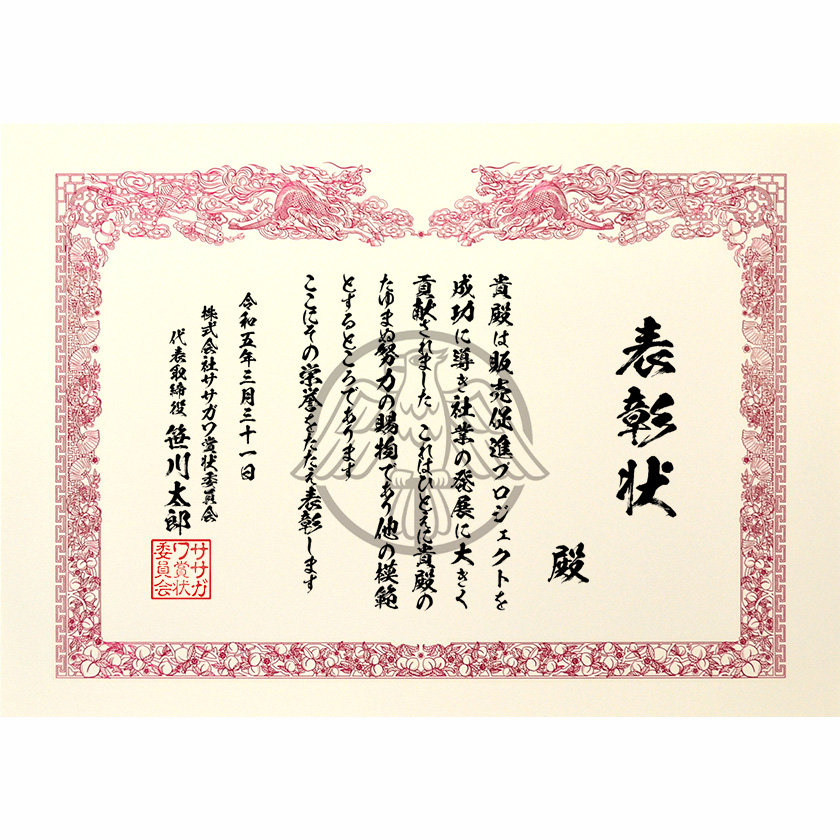 表彰状
殿
貴殿は販売促進プロジェクトを
成功に導き社業の発展に大きく
貢献されました これはひとえに貴殿の
たゆまぬ努力の賜物であり他の模範
とするところであります
ここにその栄誉をたたえ表彰します
令和五年三月三十一日
株式会社ササガワ賞状委員会
代表取締役 笹川太郎
ササガ
ワ賞状
委員会